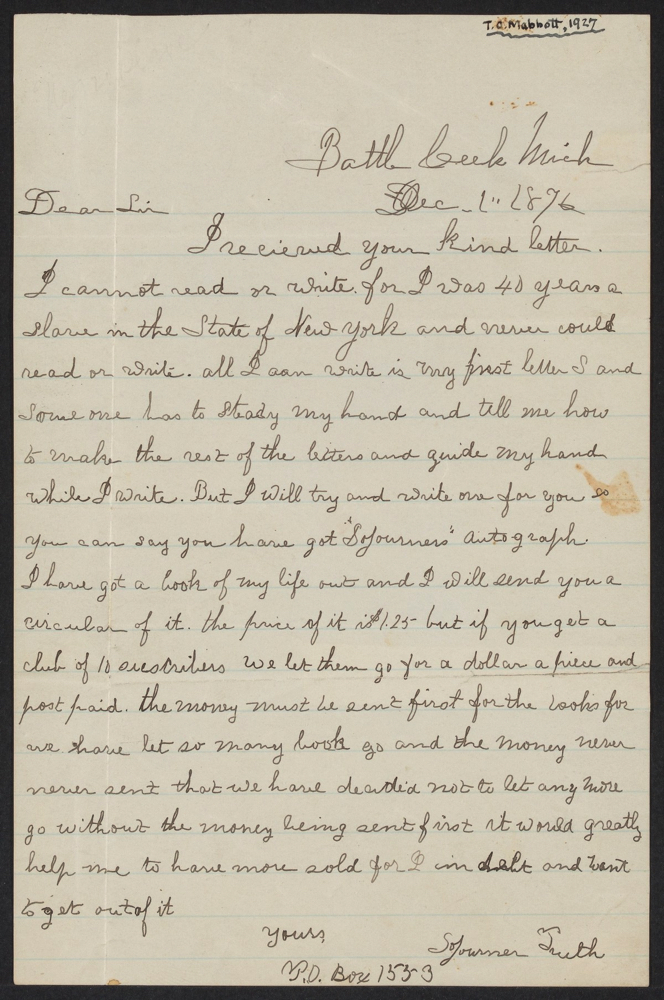 T.O. Mabbott, 1927
Battle Creek Mich
Dec. 1" 1876
Dear Sir
I recieved your kind letter.
I cannot read or write. for I was 40 years a
slave in the State of New York and never could
read or write. all I aan write is my first letter S and
Some one has to steady my hand and tell me how
to make the rest of the letters and guide my hand
while I write. But I will try and write one for you so
you can say you have got "Sojourners" autograph.
I have got a book of my life out and I will send you a
circular of it. the price of it is $1.25 but if you get a
club of 10 suscribers we let them go for a dollar a piece and
post paid. the money must be sent first for the books for
we have let so many book go and the money never
never sent that we have decided not to let any more
go without the money being sent first it would greatly
help me to have more sold for I im debt and want
to get out of it
Yours,
Sojourner Truth
P.O. Box 1553